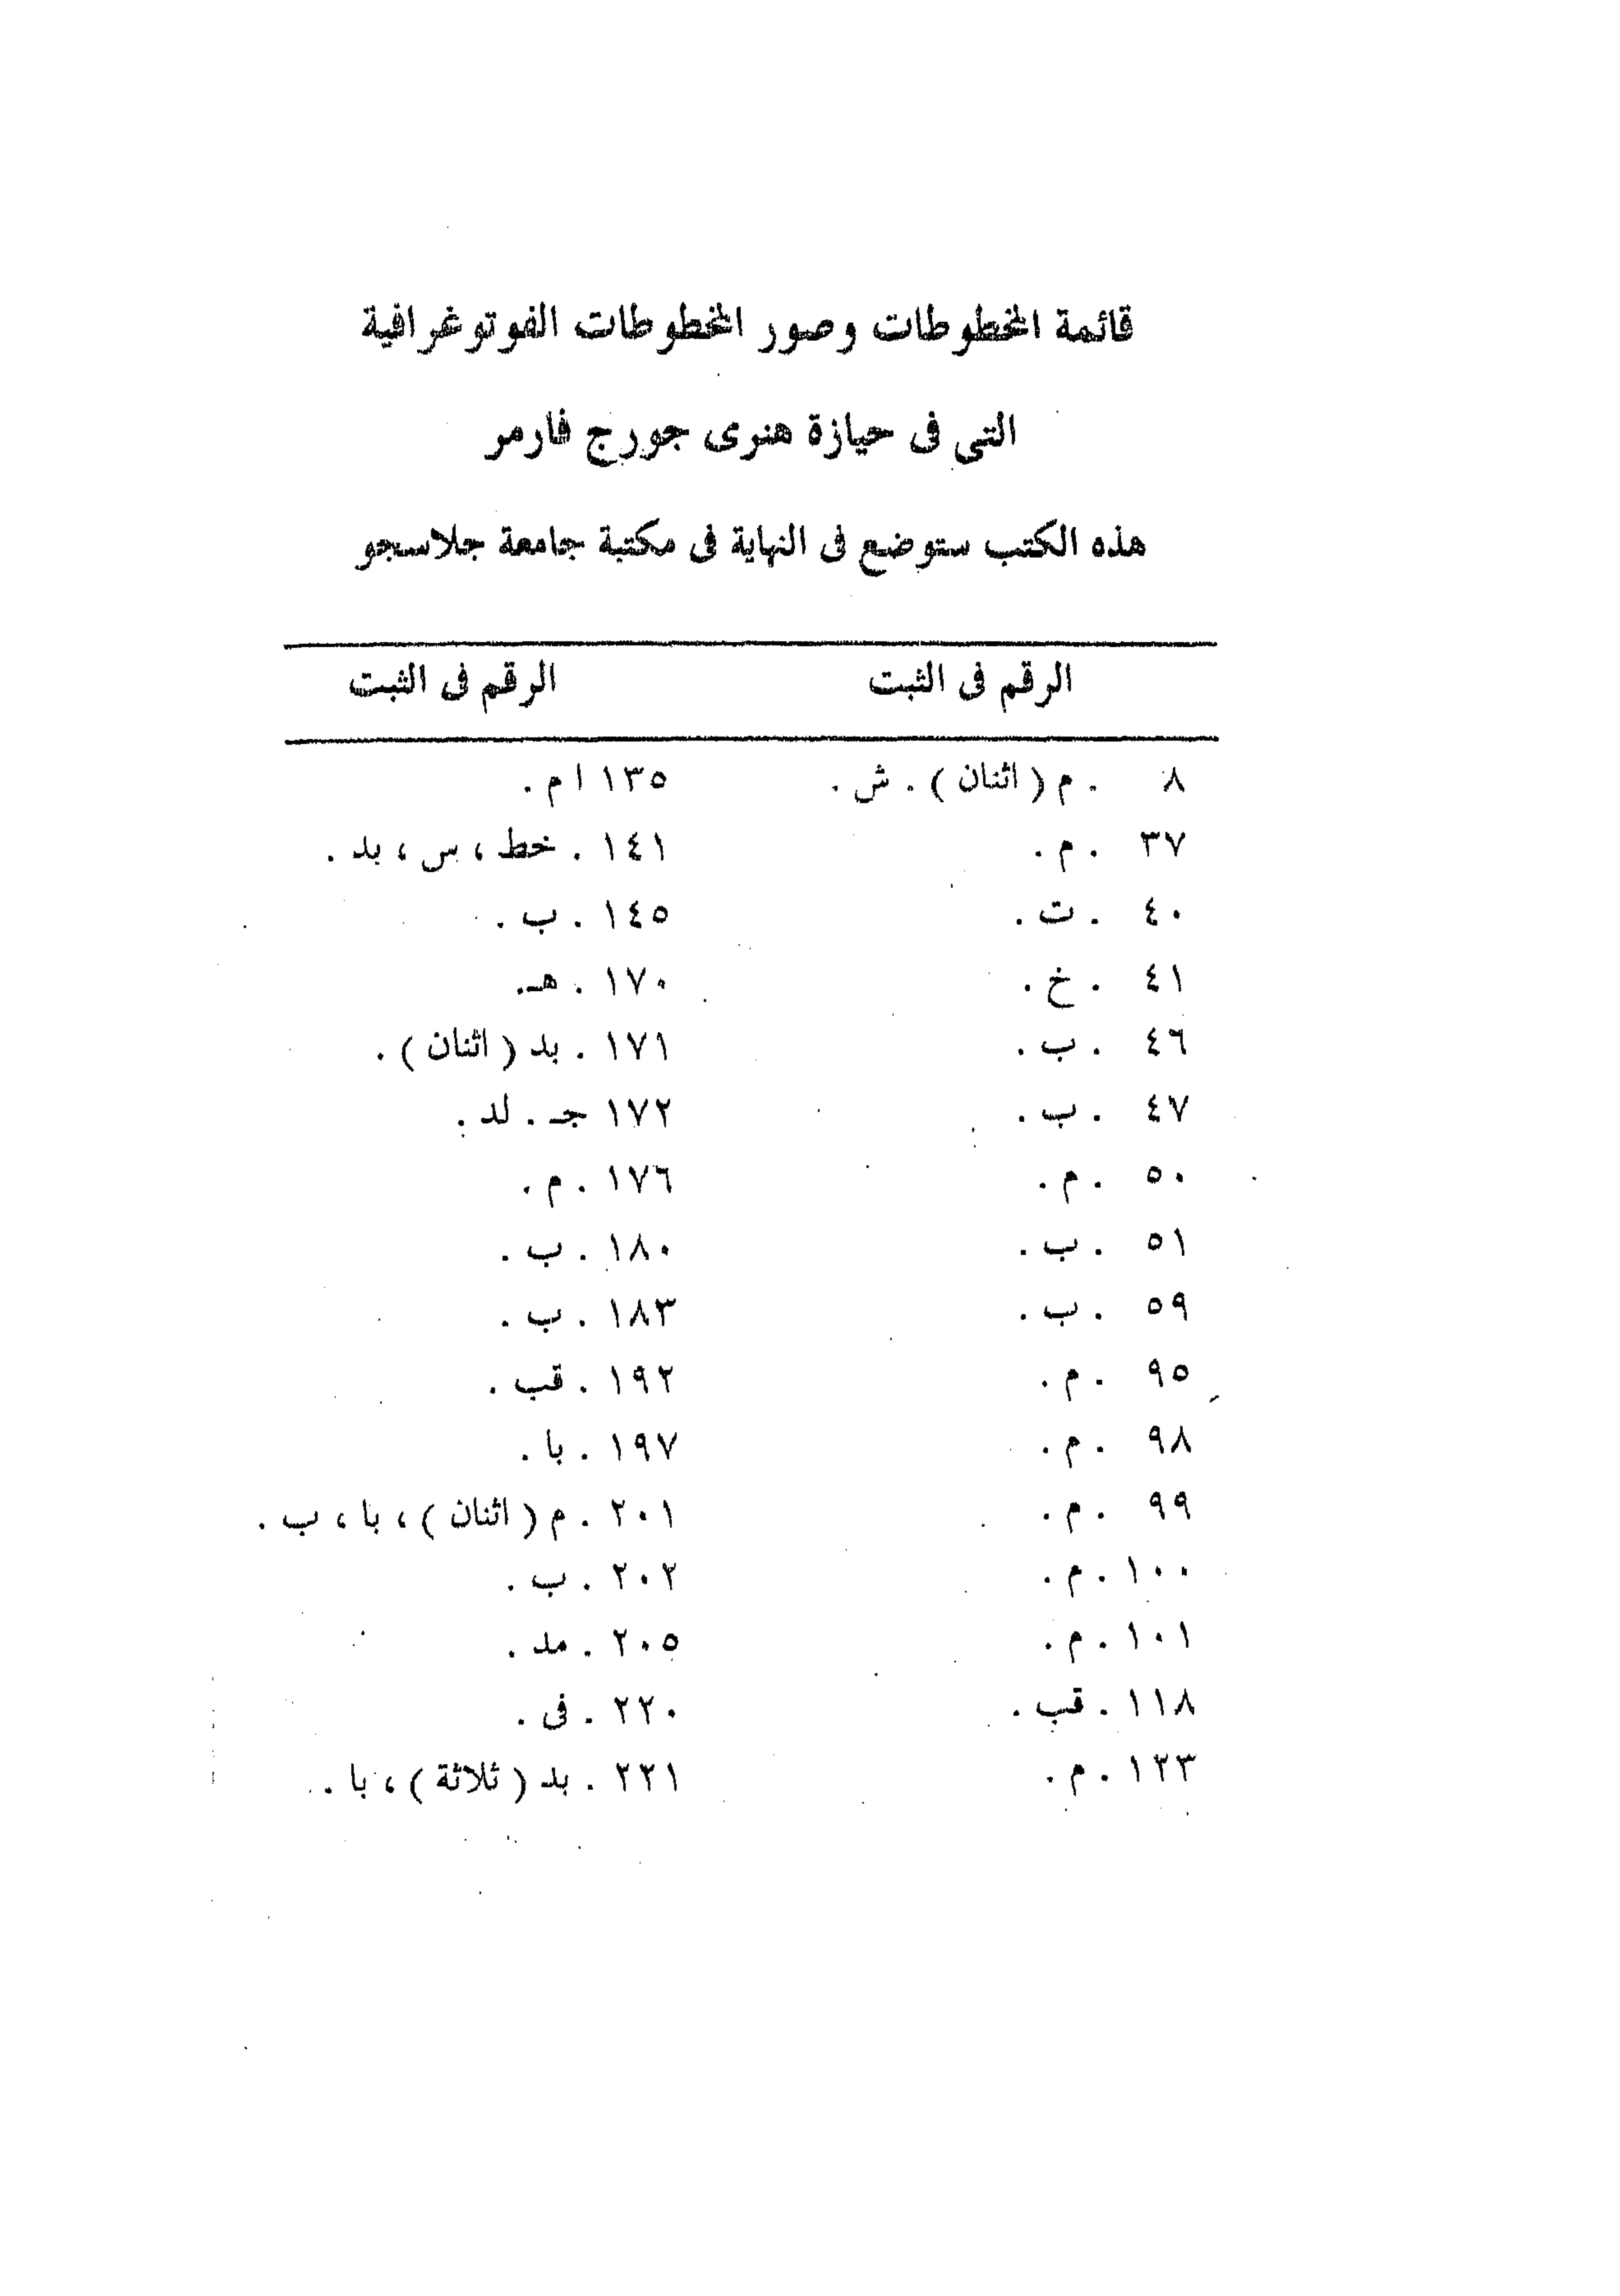 قائمة المخطوطات وصور المخطوطات الفوتوغرافية
التى فى حيازة هنرى جورج فارمر
هذه الكتب ستوضع فى النهاية فى مكتبة جامعة جلاسجو
الرقم فى الثبت الرقم فى الثبت
٨ . م ( اثنان ) . ش . ١٣٥ ا م .
٣٧ . م . ١٤١ . خط ، س ، بد .
٤٠ . ت . ١٤٥ . ب .
٤١ . خ . ١٧٠ . هـ.
٤٦ . ب . ١٧١ . بد ( اثنان ) .
٤٧ . ب . ١٧٢ جـ . لد .
٥٠ . م . ١٧٦ . م .
٥١ . ب . ١٨٠ . ب .
٥٩ . ب . ١٨٣ . ب .
٩٥ . م . ١٩٢ . قب .
٩٨ . م . ١٩٧ . با .
٩٩ . م . ٢٠١ . م ( اثنان ) ، با ، ب .
١٠٠ . م . ٢٠٢ . ب .
١٠١ . م . ٢٠٥ . مد .
١١٨ . قب . ٢٢٠ . فى .
١٢٣ . م . ٢٢١ . بد ( ثلاثة ) ، با .